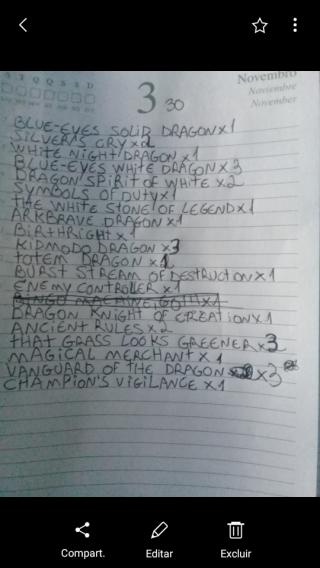 S T Q Q S S D
3 30
Novembro
Noviembre
November
BLUE-EYES SOLID DRAGON x1
SILVER'S CRY x2
WHITE NIGHT DRAGON x1
BLUE-EYES WHITE DRAGON x3
DRAGON SPIRIT OF WHITE x2
SYMBOLS OF DUTY x1
THE WHITE STONE OF LEGEND x1
ARKBRAVE DRAGON x1
BIRTHRIGHT x1
KIDMODO DRAGON x3
TOTEM DRAGON x2
BURST STREAM OF DESTRUCTION x1
ENEMY CONTROLLER x1
BINGO MACHINE GO!!! x1
DRAGON KNIGHT OF CREATION x1
ANCIENT RULES x2
THAT GRASS LOOKS GREENER x3
MAGICAL MERCHANT x1
VANGUARD OF THE DRAGON x3
CHAMPION'S VIGILANCE x1
Compart. Editar Excluir